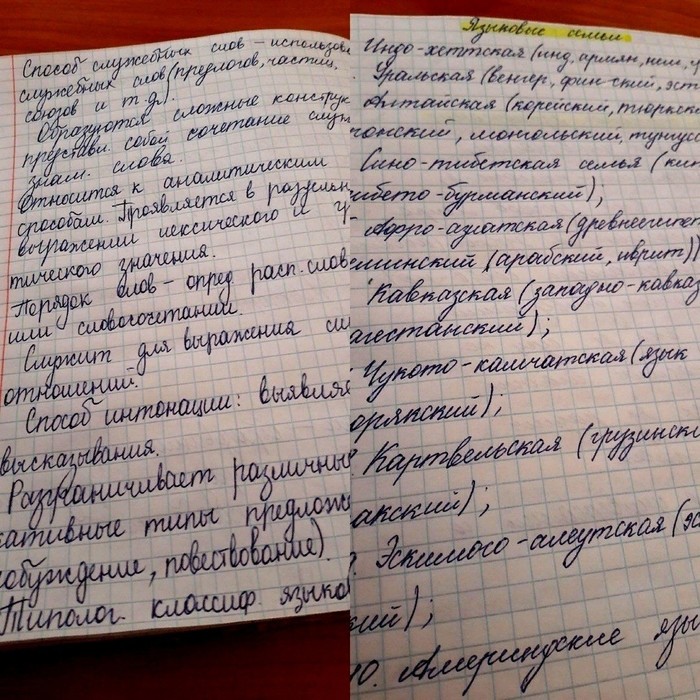 Способ служебных слов – использова
служебных слов (предлогов, частиц,
союзов и т.д.)
Образуются сложные конструк
представл. собой сочетание служ
знам. слова.
Относится к аналитическим
способам. Проявляется в раздельн
выражении лексического и гр
тического значения.
Порядок слов – опред. расп. слов
или словосочетаний.
Служит для выражения
отношений.
Способ интонации: выявляе
высказывания.
Разграничивает различные
кативные типы предлож
обуждение, повествование)
Типолог. классиф. языко
Языковые семьи
Индо-хеттская (инд, армян, нем,
Уральская (венгер, фин-ский, эст
Алтайская (корейский, тюркск
понский, монгольский, тунгус
Сино-тибетская семья (кит
ибето-бурманский);
Афро-азиатская (древнеегипе
еминский (арабский, иврит))
Кавказская (западно-кавказ
агестанский);
Чукото-камчатская (язык
орякский);
Картвельская (грузински
анский);
Эскимосо-алеутская (эс
кий);
10. Америндские язы